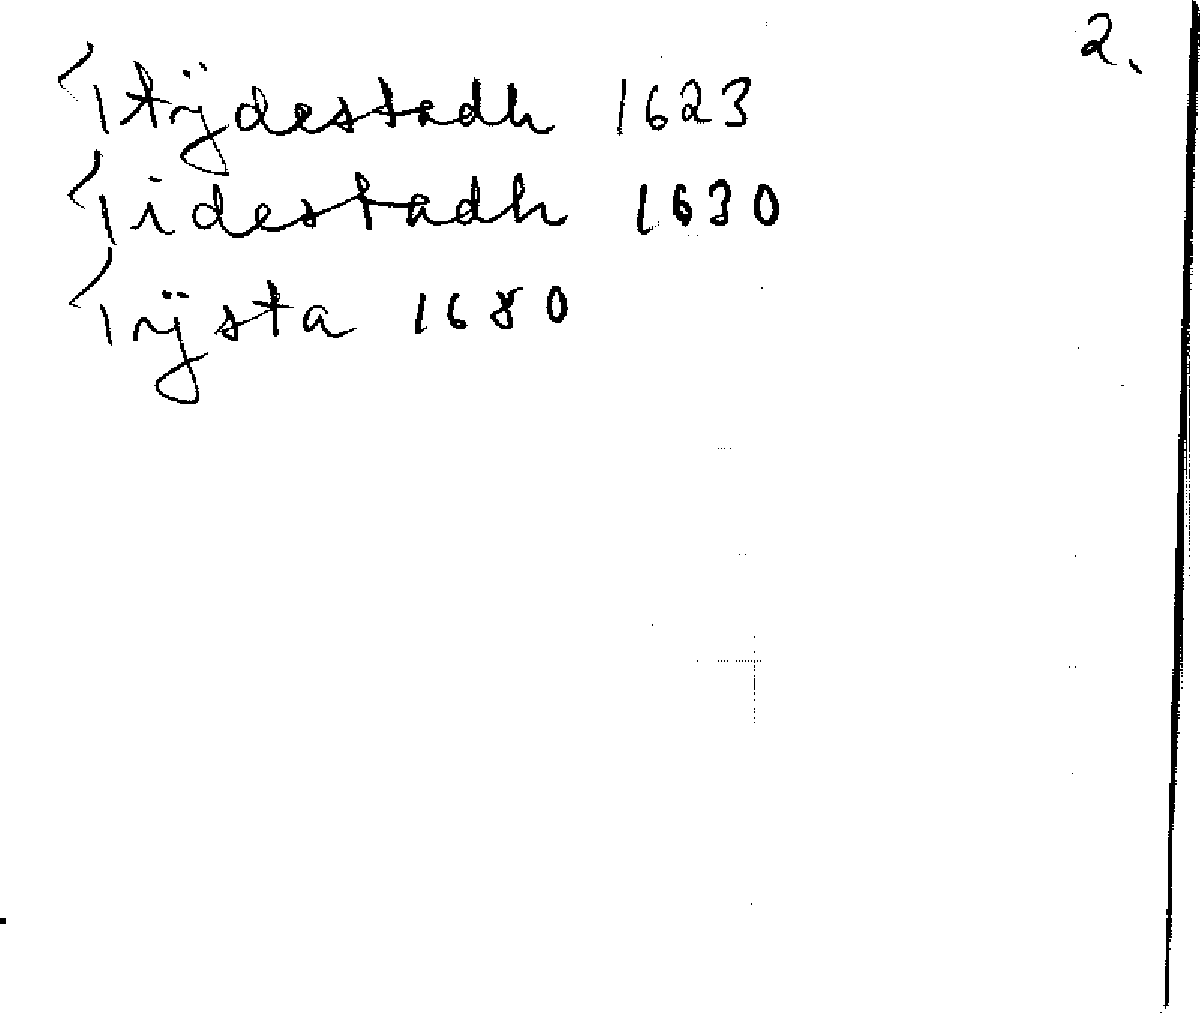 2.
Stijdestadh 1623
Sidestadh 1630
Sijsta 1680